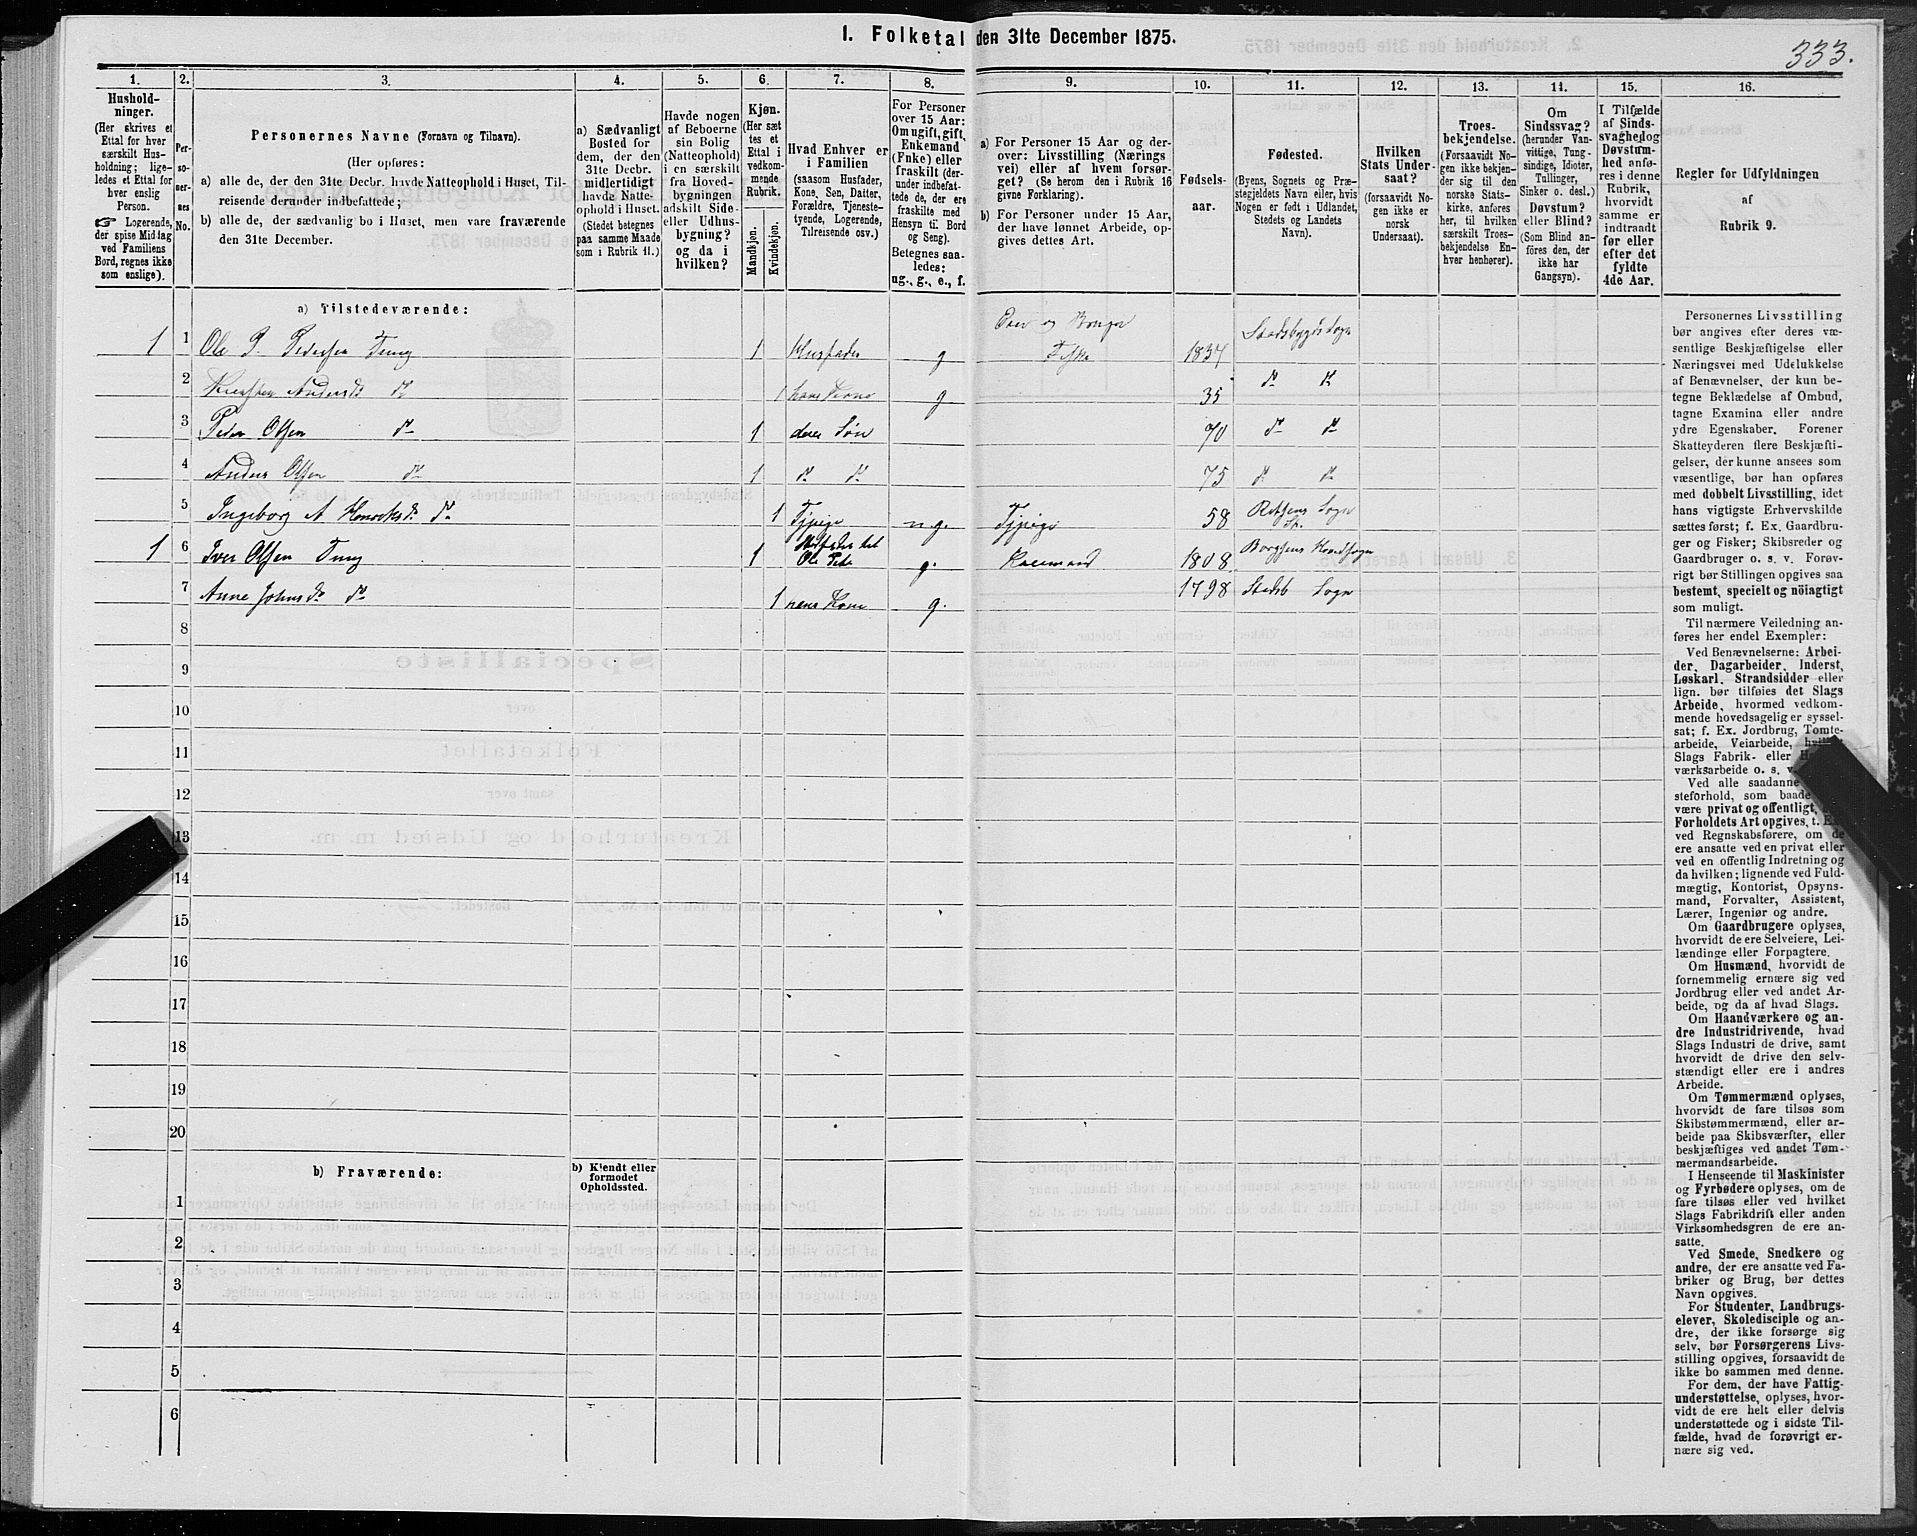 I. Folketal den 31te December 1875.
333.
1.
Hushold-
ninger.
(Her skrives et
Ettal for hver
særskilt Hus-
holdning; lige-
ledes et Ettal for
hver enslig
Person.
☞ Logerende,
der spise Middag
ved Familiens
Bord, regnes ikke
som enslige).
2.
Per-
so-
ner-
nes
No.
3.
Personernes Navne (Fornavn og Tilnavn).
(Her opføres:
a) alle de, der den 31te Decbr. havde Natteophold i Huset, Til-
reisende derunder indbefattede;
b) alle de, der sædvanlig bo i Huset, men vare fraværende
den 31te December.
4.
a) Sædvanligt
Bosted for
dem, der den
31te Decbr.
midlertidigt
havde Natte-
ophold i Huset.
(Stedet betegnes
paa samme Maade
som i Rubrik 11.)
5.
Havde nogen
af Beboerne
sin Bolig
(Natteophold)
i en særskilt
fra Hoved-
bygningen
adskilt Side-
eller Udhus-
bygning?
og da i
hvilken?
6.
Kjøn.
(Her sæt
tes et
Ettal i
vedkom-
mende
Rubrik.
Mandkjøn.
Kvindekjøn.
7.
Hvad Enhver er
i Familien
(saasom Husfader,
Kone, Søn, Datter,
Forældre, Tjeneste-
tyende, Logerende,
Tilreisende osv.)
8.
For Personer
over 15 Aar:
Om ugift, gift,
Enkemand
(Enke) eller
fraskilt (der-
under indbefat-
tede de, der ere
fraskilte med
Hensyn til Bord
og Seng).
Betegnes saa-
ledes:
ug., g., e., f.
9.
a) For Personer 15 Aar og der-
over: Livsstilling (Nærings
vei) eller af hvem forsør-
get? (Se herom den i Rubrik 16
givne Forklaring).
b) For Personer under 15 Aar,
der have lønnet Arbeide, op-
gives dettes Art.
10.
Fødsels-
aar.
11.
Fødested.
(Byens, Sognets og Præ-
stegjeldets Navn eller, hvis
Nogen er født i Udlandet,
Stedets og Landets
Navn).
12.
Hvilken
Stats Under-
saat?
(forsaavidt No-
gen ikke er
norsk
Undersaat).
13.
Troes-
bekjendelse.
(Forsaavidt No-
gen ikke bekjen-
der sig til den
norske Stats-
kirke, anføres
her, til hvilken
særskilt Troes-
bekjendelse En-
hver henhører).
14.
Om
Sindssvag?
(herunder Van-
vittige, Tung-
sindige, Idioter,
Tullinger,
Sinker o. desl.)
Døvstum?
eller Blind?
(Som Blind an-
føres den, der
ikke har
Gangsyn).
15.
I Tilfælde
af Sinds-
svaghed og
Døvstum-
hed anfø-
res i denne
Rubrik,
hvorvidt
samme er
indtraadt
før eller
efter det
fyldte
4de Aar.
16.
Regler for Udfyldningen
af
Rubrik 9.
a) Tilstedeværende:
1 1 Ole P. Pedersen Tung 1 Husfader g Eier og Bruger Fisker 1837 Stadsbygds Sogn
2 Anders d 1 hans Kone g 35 do do
3 Peder Olsen do 1 deres Søn 70 do do
4 Anders Olsen do 1 do do 75 do do
5 Ingeborg A. Henriksd. do 1 Tjpige ug. Tjpige 58 Rissens Sogn
1 6 Iver Olsen Tung 1 Ole g. Kaarmand 1808
7 Anne Johnsd. do 1 hans Kone g. 1798 Stadsb Sogn
8
9
10
11
12
13
14
15
16
17
18
19
20
b) Fraværende:
b) Kjendt eller
formodet
Opholdssted.
1
2
3
4
5
6
Personernes Livsstilling
bør angives efter deres væ-
sentlige Beskjæftigelse eller
Næringsvei med Udelukkelse
af Benævnelser, der kun be-
tegne Beklædelse af Ombud,
tagne Examina eller andre
ydre Egenskaber. Forener
Skatteyderen flere Beskjæfti-
gelser, der kunne ansees som
væsentlige, bør han opføres
med dobbelt Livsstilling, idet
hans vigtigste Erhvervskilde
sættes først; f. Ex. Gaardbru-
ger og Fisker; Skibsreder og
Gaardbruger o. s. v. Forøv-
rigt bør Stillingen opgives saa
bestemt, specielt og nöiagtigt
som muligt.
Til nærmere Veiledning an-
føres her endel Exempler:
Ved Benævnelserne: Arbei-
der, Dagarbeider, Inderst,
Løskarl, Strandsidder eller
lign. bør tilføies det Slags
Arbeide, hvormed vedkom-
mende hovedsagelig er syssel-
sat; f. Ex. Jordbrug, Tomte-
arbeide, Veiarbeide,
Slags Fabrik- eller
værksarbeide o. s. v.
Ved alle saadanne
steforhold, som baade
være privat og offentligt,
Forholdets Art opgives, t. Ex.
ved Regnskabsførere, om de
ere ansatte ved en privat eller
ved en offentlig Indretning og
da hvilken; lignende ved Fuld-
mægtig, Kontorist, Opsyns-
mand, Forvalter, Assistent,
Lærer, Ingeniør og andre.
Om Gaardbrugere oplyses,
hvorvidt de ere Selveiere, Lei-
lændinge eller Forpagtere.
Om Husmænd, hvorvidt de
fornemmelig ernære sig ved
Jordbrug eller ved andet Ar-
beide, og da af hvad Slags.
Om Haandværkere og an-
dre Industridrivende, hvad
Slags Industri de drive, samt
hvorvidt de drive den selv-
stændigt eller ere i andres
Arbeide.
Om Tømmermænd oplyses,
hvorvidt de fare tilsøs som
Skibstømmermænd, eller ar-
beide paa Skibsværfter, eller
beskjæftiges ved andet Tøm-
mermandsarbeide.
I Henseende til Maskinister
og Fyrbødere oplyses, om de
fare tilsøs eller ved hvilket
Slags Fabrikdrift eller anden
Virksomhedsgren de ere an-
satte.
Ved Smede, Snedkere og
andre, der ere ansatte ved Fa-
briker og Brug, bør dettes
Navn opgives.
For Studenter, Landbrugs-
elever, Skoledisciple og an-
dre, der ikke forsørge sig
selv, bør Forsørgerens Livs-
stilling opgives, forsaavidt de
ikke bo sammen med denne.
For dem, der have Fattig-
understøttelse, oplyses, hvor-
vidt de ere helt eller delvis
understøttede og i sidste Til-
fælde, hvad de forøvrigt er-
nære sig ved.